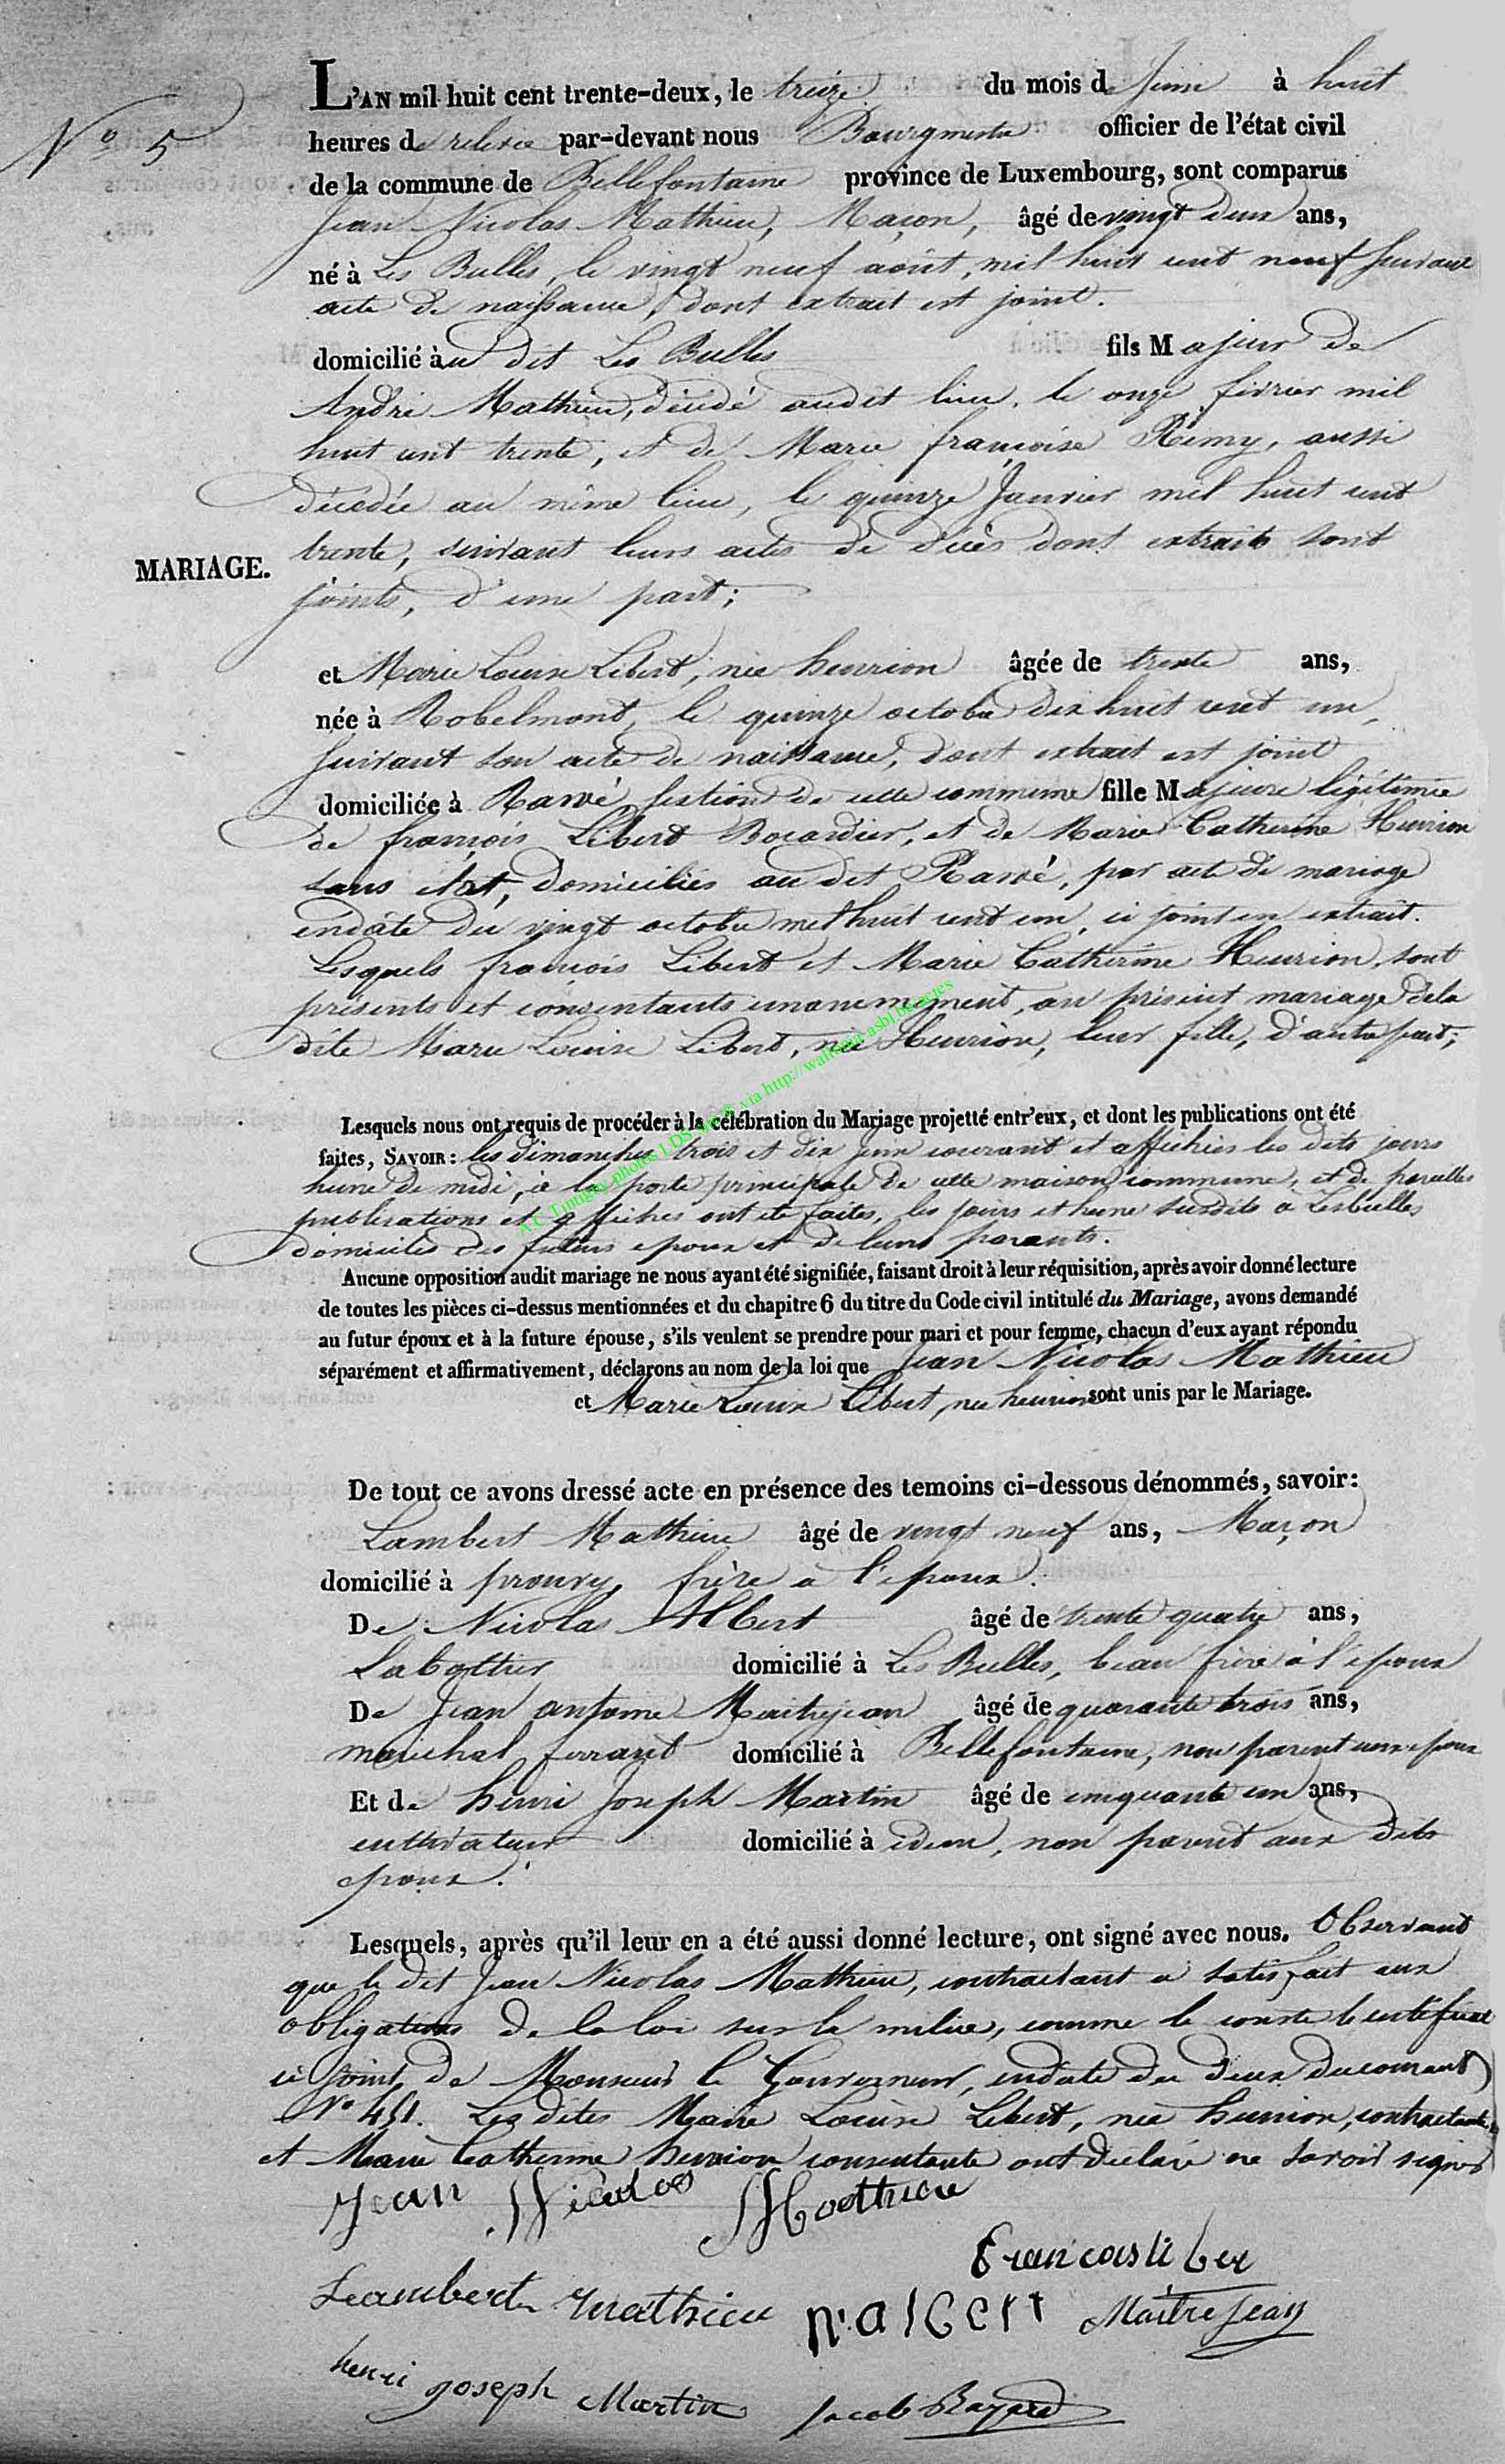 L'AN mil huit cent trente-deux, le treize du mois de Juin à huit
N° 5
heures de relevée par-devant nous Bourgmestre officier de l'état civil
de la commune de Bellefontaine province de Luxembourg, sont comparus
Jean Nicolas Mathieu, Maçon, âgé de vingt deux ans,
né à Les Bulles, le vingt neuf août, mil huit cent neuf suivant
acte de naissance, dont extrait est joint.
domicilié au dit Les Bulles fils Majeur de
André Mathieu, décédé audit lieu, le onze février mil
huit cent trente, et de Marie françoise Rémy, aussi
décédée au même lieu, le quinze Janvier mil huit cent
trente, suivant leurs actes de décès dont extraits sont
MARIAGE.
joints, d'une part;
et Marie Louise Libert, née henrion âgée de trente ans,
née à Robelmont, le quinze octobre dix huit cent un,
suivant son acte de naissance, dont extrait est joint
domiciliée à Rawé section de cette commune fille Majeure légitimée
de françois Libert Bocardier, et de Marie Catherine Henrion
sans état, domiciliés au dit Rawé, par acte de mariage
endate du vingt octobre mil huit cent un, ci joint en extrait.
Lesquels françois Libert et Marie Catherine Henrion, sont
présents et consentants unanimement, au présent mariage dela
dite Marie Louise Libert, née Henrion, leur fille, d'autre part;
Lesquels nous ont requis de procéder à la célébration du Mariage projetté entr'eux, et dont les publications ont été
faites, SAVOIR: les dimanches trois et dix Juin courant et affichées les dits jours
heure de midi, à la porte principale de cette maison commune, et de pareilles
publications et affiches ont été faites, les jours et heure susdits à Lesbulles
domiciles des futurs epoux et de leurs parents.
Aucune opposition audit mariage ne nous ayant été signifiée, faisant droit à leur réquisition, après avoir donné lecture
de toutes les pièces ci-dessus mentionnées et du chapitre 6 du titre du Code civil intitulé du Mariage, avons demandé
au futur époux et à la future épouse, s'ils veulent se prendre pour mari et pour femme, chacun d'eux ayant répondu
séparément et affirmativement, déclarons au nom de la loi que Jean Nicolas Mathieu
et Marie Louise Libert, née henrion sont unis par le Mariage.
De tout ce avons dressé acte en présence des temoins ci-dessous dénommés, savoir:
Lambert Mathieu âgé de vingt neuf ans, Maçon
domicilié à prouvy, frère à l'epoux.
De Nicolas Albert âgé de trente quatre ans,
Sabottier domicilié à Les Bulles, beau frère à l'époux
De Jean antoine Maitrejean âgé de quarante trois ans,
maréchal ferrant domicilié à Bellefontaine, non parent aux epoux
Et de henri Joseph Martin âgé de cinquante un ans,
cultivateur domicilié à idem, non parent aux dits
epoux.
Lesquels, après qu'il leur en a été aussi donné lecture, ont signé avec nous. Observant
que le dit Jean Nicolas Mathieu, contractant a satisfait aux
obligations de la loi sur la milice, comme le conste le certificat
ci joint, de Monsieur le Gouverneur, endate du deux du courant
N° 451. Les dites Marie Louise Libert, née henrion, contractante
et Marie Catherine henrion consentante ont déclaré ne savoir signer
Jean Nicolas Mathieu
francois liber
Leambert Mathieu n. alBert Maitrejean
henri joseph Martin Jacob Bayard
A.C. Tintigny photos LDS via http://wallonia-asbl.be/actes